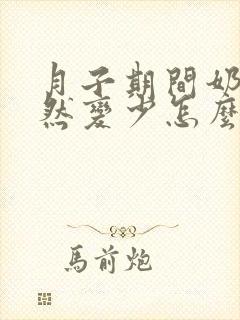 月子期間奶
然變少怎麼
馬前炮